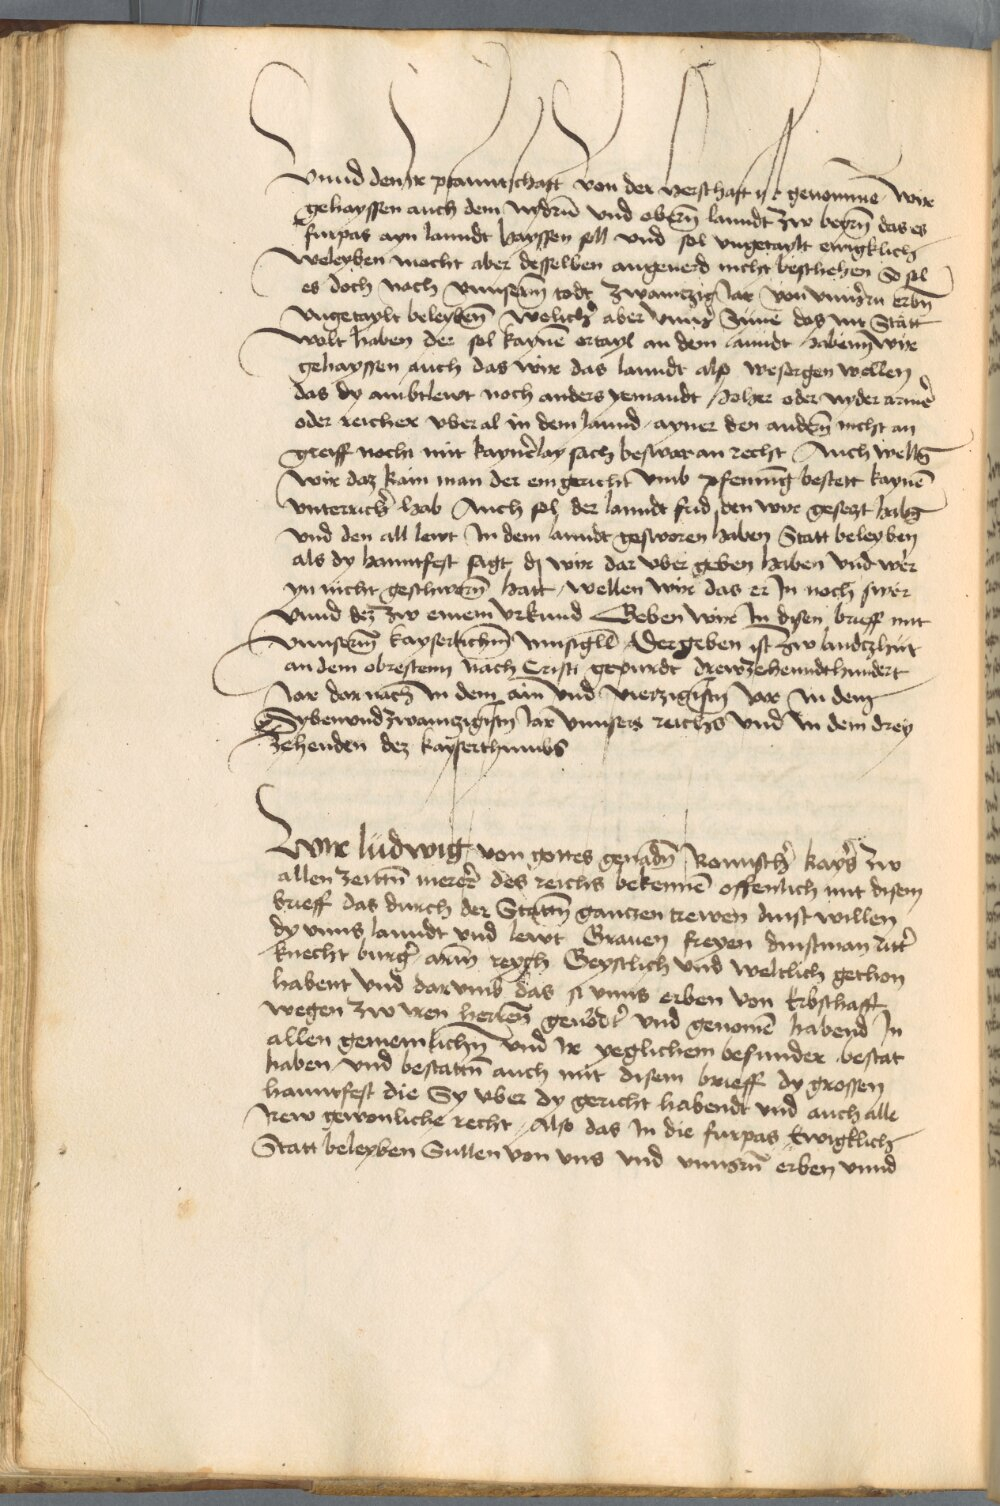 Vnnd den Ir pfanntschafft von der herschafft ist genomme Wir
gehayssen auch dem nydrn̄ vnd obern̄ lanndt zw beyrn̄ das es
furpas ayn lanndt hayssen soll vnd sol vngetaylt ewigklich
beleyben mocht aber desselben angeuerd nicht beschehen So sol
es doch nach vnnserm̄ todt zwainczig Jar von vnnsern erbn̄
vngetaylt beleyben̄ Welicher aber vnnser Süne das nit Stätt
wolt haben der sol kaynē ertayl an dem lanndt habenn Wir
gehayssen auch das wir das lanndt also besorgen wellen
das dy ambtlewt noch anders yemandt hoher oder nyder armer
oder reicher vberal in dem lannd ayner den andern̄ nicht an
greiff noch mit kaynerlay sach beswar an recht Auch welln̄
wir daz kain man der ein gericht vmb pfenning bestett kaynē
vnterricht hab Auch sol der lanndt frid den wir geseczt habn̄
vnd den all lewt In dem lanndt gesworen haben Statt beleyben
als dy hanntfest sagt dj wir dar vber geben haben vnd wer
yn nicht geschworn̄ hatt wellen wir das er In noch swer
Vnnd dez zw einem vrkund Geben wir In disen brieff mit
vnnserm̄ kayserlichem̄ Innsigll Der geben ist zw landczhut
an dem obrestenn nach Cristi gepurdt drewzehenndthundert
Jar dar nach in dem ain vnd vierzigistn̄ Jar In dem
Sybenundzwainczigistn̄ Jar vnnsers reichs vnd In dem drey
zehenden dez kayserthumbs

Wir ludwig von gottes genadn̄ Romischer kayser zw
allen zeittn̄ merer des reichs bekennē offenlich mit disem
brieff das durch der Stattn̄ ganczen trewen dinst willen
dy vnns lanndt vnd lewt Grauen freyen dinstman ritter
knecht burger arm̄ reych Geystlich vnd weltlich gethon
habent vnd darumb das si vnns erben von Erbschafft
wegen zw iren herren̄ geuodert vnd genomē habend In
allen gemeinlichn̄ vnd Ir yeglichem besunder bestat
haben vnd bestattn̄ auch mit disem brieff dy grossen
hanntfest die Sy vber dy gericht habendt vnd auch alle
Irew gewonliche recht Also das In die furpas Ewigklich
Statt beleyben Sullen von vns vnd vnnsern̄ erben vnnd